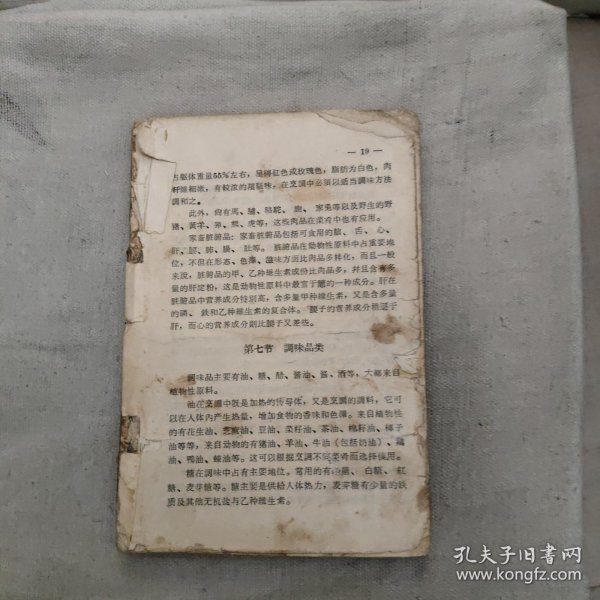 — 19 —
占躯体重量55%左右，呈褐紅色或玫瑰色，脂肪为白色，肉
纤維細嫩，有較浓的羶騷味，在烹調中必須以适当調味方法
調和之。
此外，尙有馬、驢、駱駝、鹿、家兎等以及野生的野
猪、黃羊、熊、虎等，这些肉品在菜肴中也有应用。
家畜脏腑品：家畜脏腑品包括可食用的脑、舌、心、
肝、腰、肺、腸、肚等。脏腑品在动物性原料中占重要地
位，不但在形态、色澤、滋味方面比肉品多样化，而且一般
来說，脏腑品的甲、乙种維生素成份比肉品多，幷且含有多
量的肝淀粉，这是动物性原料中最富于糖的一种成分。肝在
脏腑品中营养成分特別高，含多量甲种維生素，又是含多量
的磷、鉄和乙种維生素的复合体。腰子的营养成分稍遜于
肝，而心的营养成分則比腰子又差些。
第七节 調味品类
調味品主要有油、糖、醋、醬油、醬、酒等，大都来自
植物性原料。
油在烹調中旣是加热的传导体，又是烹調的調料，它可
以在人体內产生热量，增加食物的香味和色澤。来自植物性
的有花生油、芝麻油、豆油、菜籽油、茶油、棉籽油、椰子
油等等，来自动物的有猪油、羊油、牛油（包括奶油）、雞
油、鴨油、蠔油等。这可以根据烹調不同菜肴而选择使用。
糖在調味中占有主要地位。常用的有冰糖、白糖、紅
糖、麦芽糖等。糖主要是供給人体热力，麦芽糖有少量的鉄
质及其他无机盐与乙种維生素。
孔夫子旧書网
www.kongfz.com